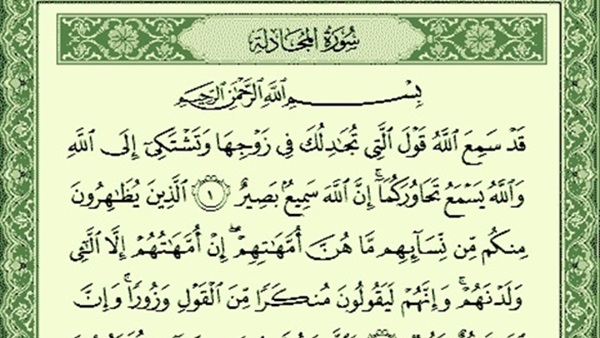 سُورَةُ المُجَادلَة
بِسْمِ اللَّهِ الرَّحْمَٰنِ الرَّحِيمِ
قَدْ سَمِعَ اللَّهُ قَوْلَ الَّتِي تُجَادِلُكَ فِي زَوْجِهَا وَتَشْتَكِي إِلَى اللَّهِ
وَاللَّهُ يَسْمَعُ تَحَاوُرَكُمَا ۚ إِنَّ اللَّهَ سَمِيعٌ بَصِيرٌ ١ الَّذِينَ يُظَاهِرُونَ
مِنكُم مِّن نِّسَائِهِم مَّا هُنَّ أُمَّهَاتِهِمْ ۖ إِنْ أُمَّهَاتُهُمْ إِلَّا اللَّائِي
وَلَدْنَهُمْ ۚ وَإِنَّهُمْ لَيَقُولُونَ مُنكَرًا مِّنَ الْقَوْلِ وَزُورًا ۚ وَإِنَّ